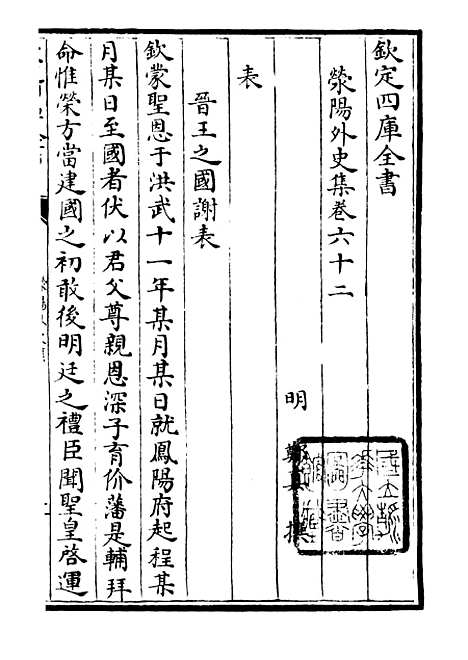 欽定四庫全書
滎陽外史集卷六十二
明 鄭真 撰
表
晉王之國謝表
欽蒙聖恩于洪武十一年某月某日就鳳陽府起程某
月某日至國者伏以君父尊親恩深子育价藩是輔拜
命惟榮方當建國之初敢後明廷之禮臣聞聖皇啓運